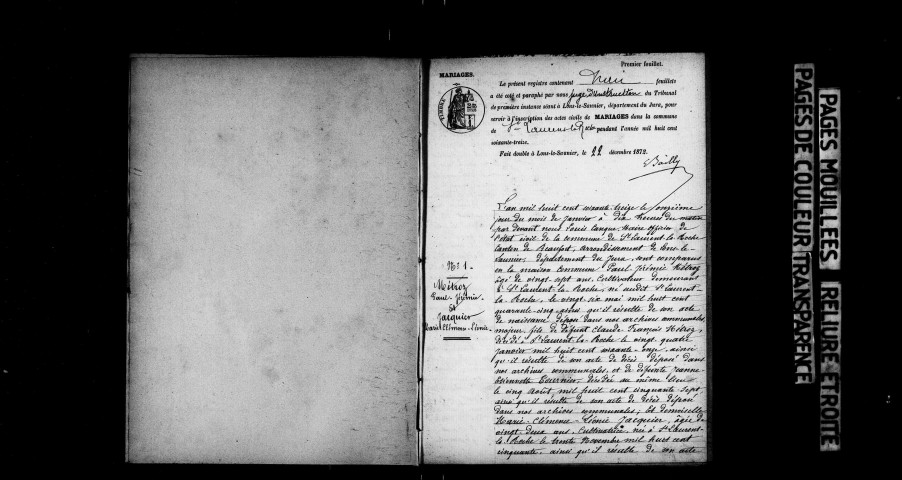 Premier feuillet.
MARIAGES.
Le présent registre contenant feuillets
a été coté et paraphé par nous Juge d'instruction du Tribunal
de première instance séant à Lons-le-Saunier, département du Jura, pour
servir à l'inscription des actes civils de MARIAGES dans la commune
de St Laurent la Roche pendant l'année mil huit cent
soixante-treize.
Fait double à Lons-le-Saunier, le 22 décembre 1872.
Bailly
TIMBRE
L'an mil huit cent soixante treize le onzième
jour du mois de janvier à dix heures du matin
par devant nous Louis Maire officier de
l'état civil de la commune de St Laurent-la-Roche
Canton de Beaufort, arrondissement de Lons-le-
Saunier, département du Jura, sont comparus
en la maison commune Paul Jérémie Métroz
âgé de vingt sept ans, Cultivateur demeurant
à St Laurent-la-Roche, né audit St Laurent-
la-Roche, le vingt six mai mil huit cent
quarante-cinq, ainsi qu'il résulte de son acte
de naissance déposé dans nos archives communales,
majeur, fils de défunt Claude François Métroz,
décédé à St Laurent-la-Roche le vingt quatre
janvier mil huit cent soixante-onze, ainsi
qu'il résulte de son acte de décès déposé dans
nos archives communales, et de défunte Jeanne
Etiennette Bournier, décédée au même lieu
le cinq Août mil huit cent cinquante sept,
ainsi qu'il résulte de son acte de décès déposé
dans nos archives communales; Et demoiselle
Marie-Clémence-Léonie Jacquier, âgée de
vingt-deux ans, Cultivatrice, née à St Laurent-
la-Roche le trente Novembre mil huit cent
cinquante, ainsi qu'il résulte de son acte
No 1.
Métroz
Paul-Jérémie
et
Jacquier
Marie-Clémence-Léonie
PAGES MOUILLEES RELIURE ETROITE
PAGES DE COULEUR TRANSPARENCE